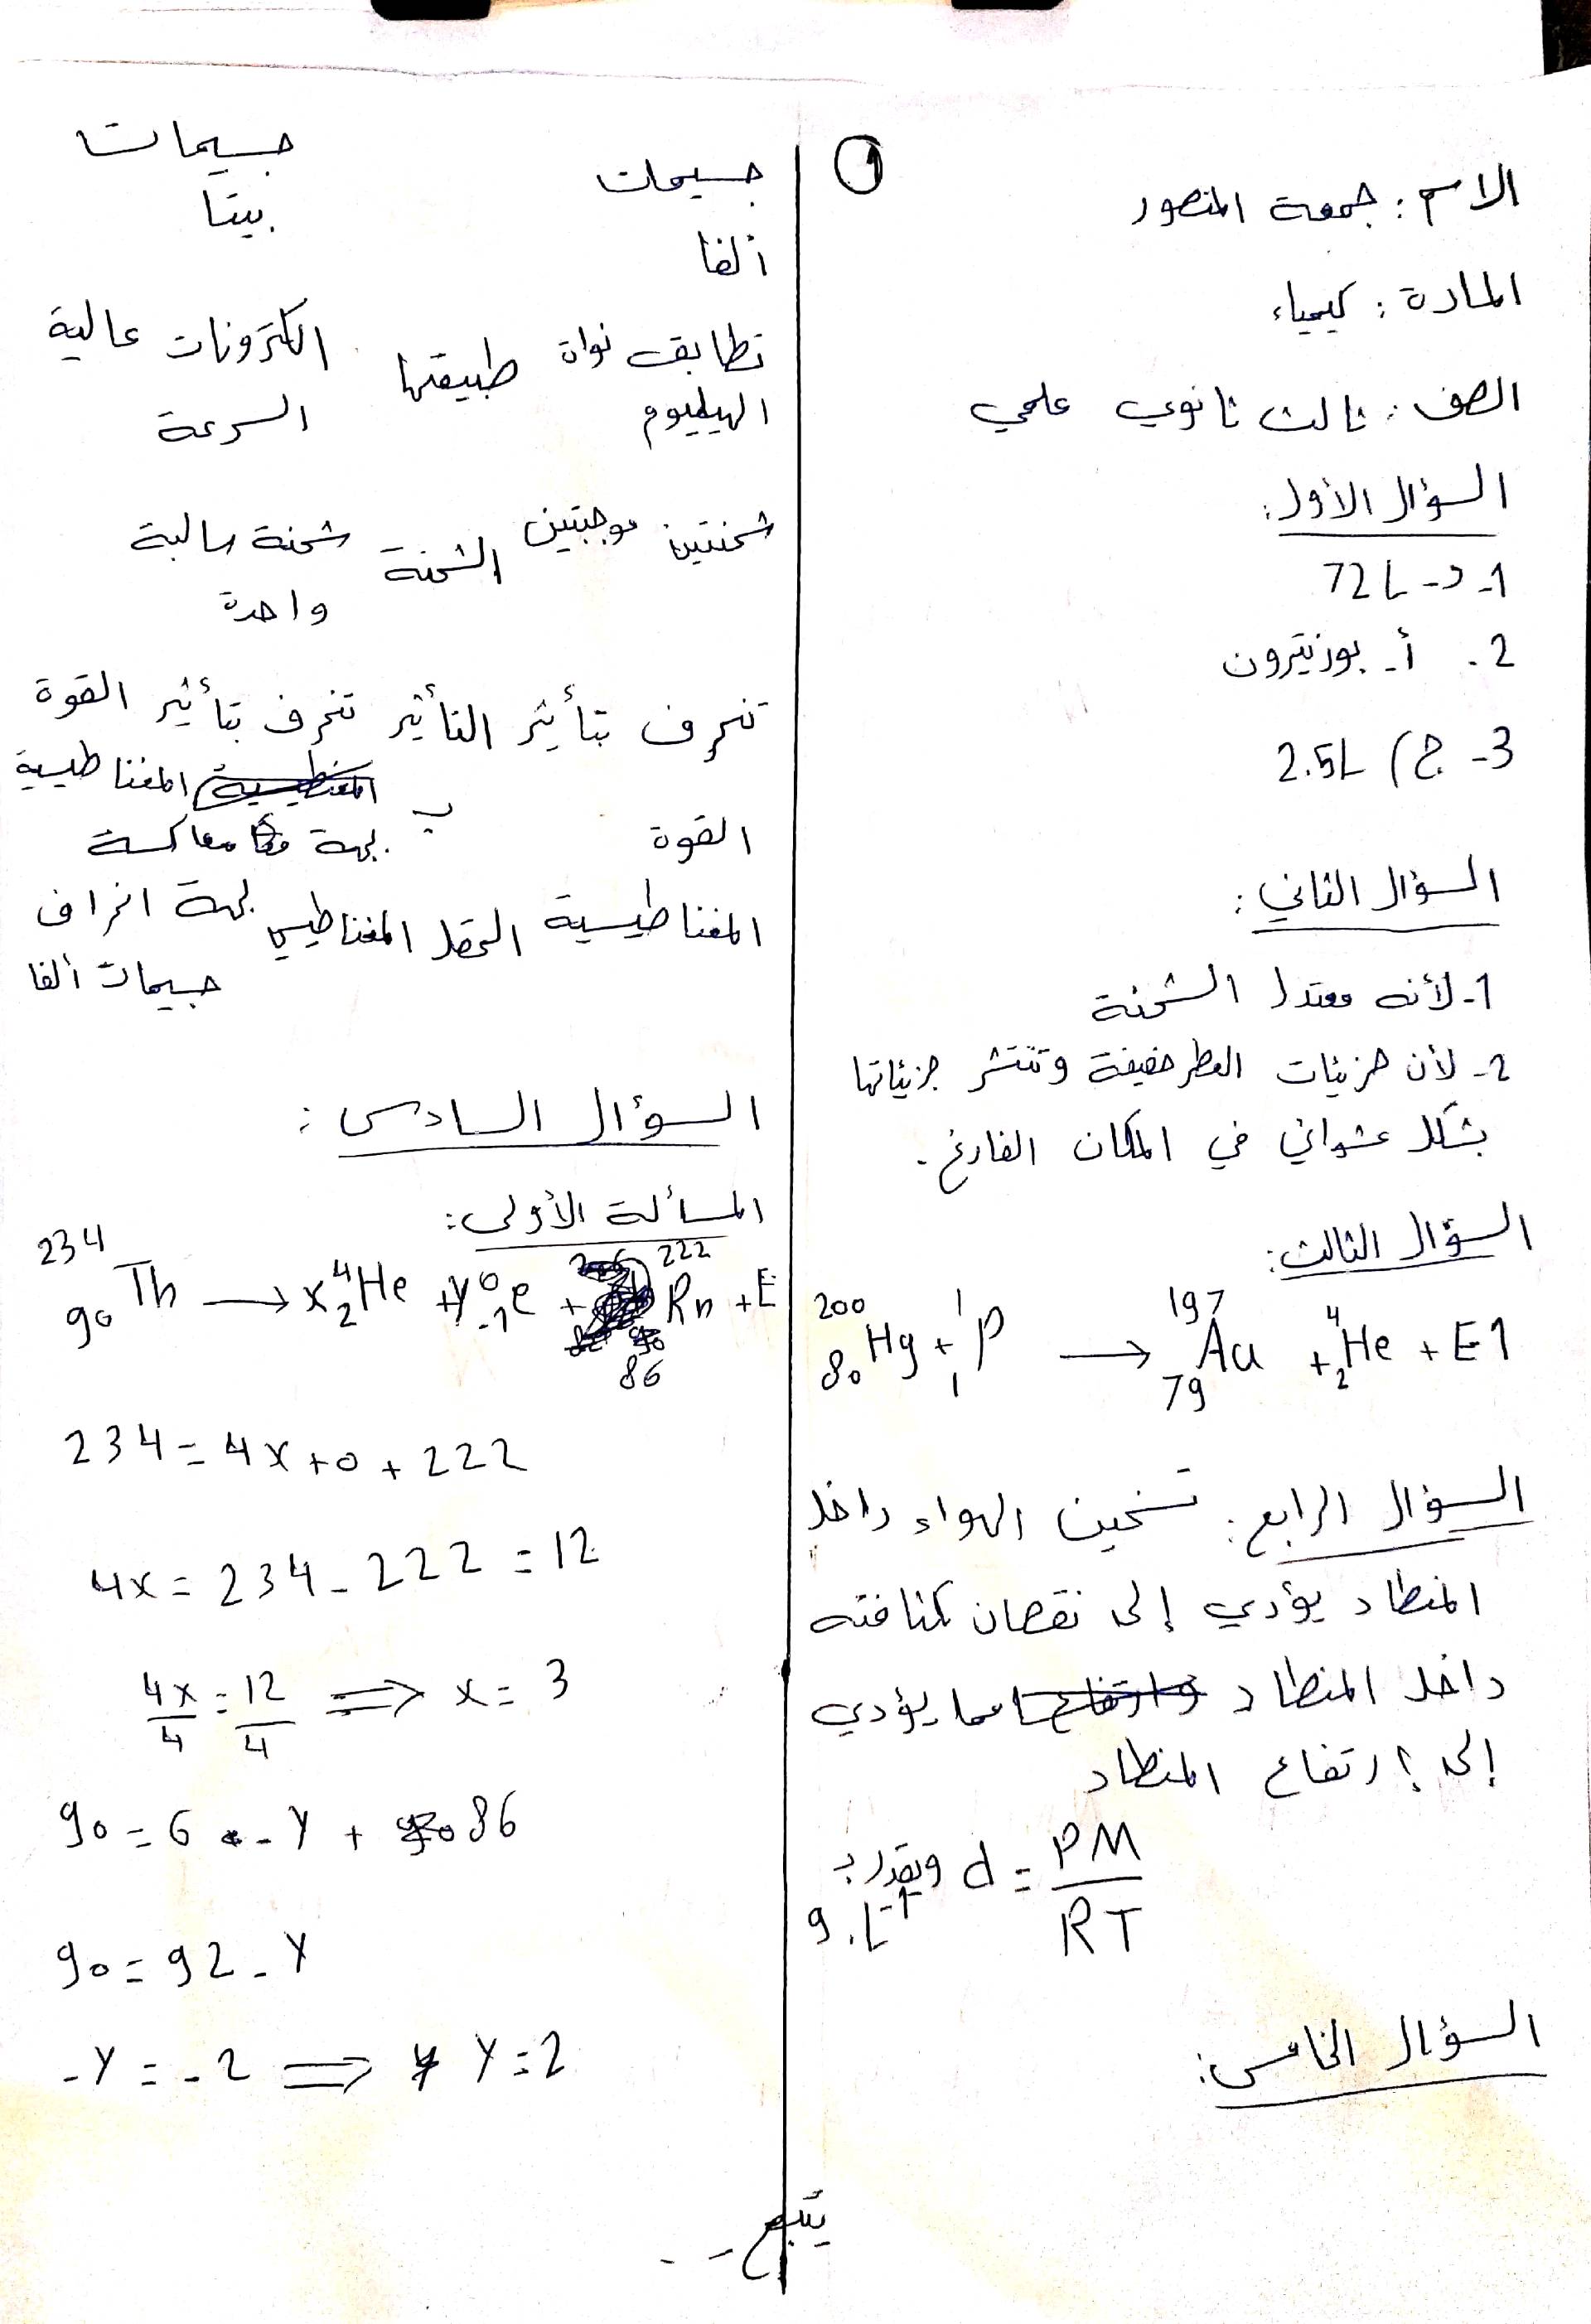 ①
الاسم : جمعة المنصور
المادة : كيمياء
الصف : ثالث ثانوي علمي
السؤال الأول:
1- د- 72L
2. أ- بوزيترون
3- ج) 2.5L
السؤال الثاني :
1- لأنه معتدل الشحنة
2- لأن جزيئات العطر خفيفة وتنتشر جزيئاتها
بشكل عشوائي في المكان الفارغ .
السؤال الثالث:
²⁰⁰₈₀Hg + ¹₁P → ¹⁹⁷₇₉Au + ⁴₂He + E1
السؤال الرابع : تسخين الهواء داخل
المنطاد يؤدي إلى نقصان كثافته
داخل المنطاد مما يؤدي
إلى ارتفاع المنطاد
d = PM/RT ويقدر بـ
g.L⁻¹
السؤال الخامس:
جسيمات ألفا
جسيمات بيتا
تطابق نواة الهيليوم
طبيعتها
الكترونات عالية السرعة
شحنتين موجبتين
الشحنة
شحنة سالبة واحدة
تنحرف بتأثير القوة المغناطيسية
التأثير بـ الحقل المغناطيسي
تنحرف بتأثير القوة المغناطيسية
لجهة معاكسة
لجهة انحراف
جسيمات ألفا
السؤال السادس :
المسألة الأولى:
²³⁴₉₀Th → x⁴₂He + y⁰₋₁e + ²²²₈₆Rn + E
234 = 4x + 0 + 222
4x = 234 - 222 = 12
4x/4 = 12/4 ⟹ x = 3
90 = 6 - y + 86
90 = 92 - y
-y = -2 ⟹ y = 2
يتبع - -